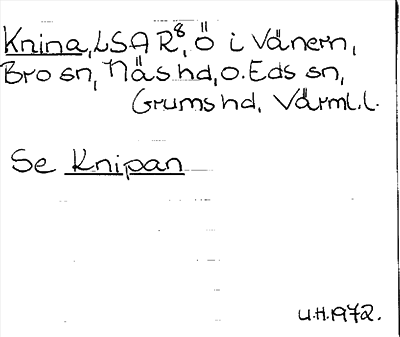 Knina, LSA R⁸, Ö i Vänern,
Bro sn, Näs hd, o. Eds sn,
Grums hd, Värml. l.
Se Knipan
U.H. 1972.